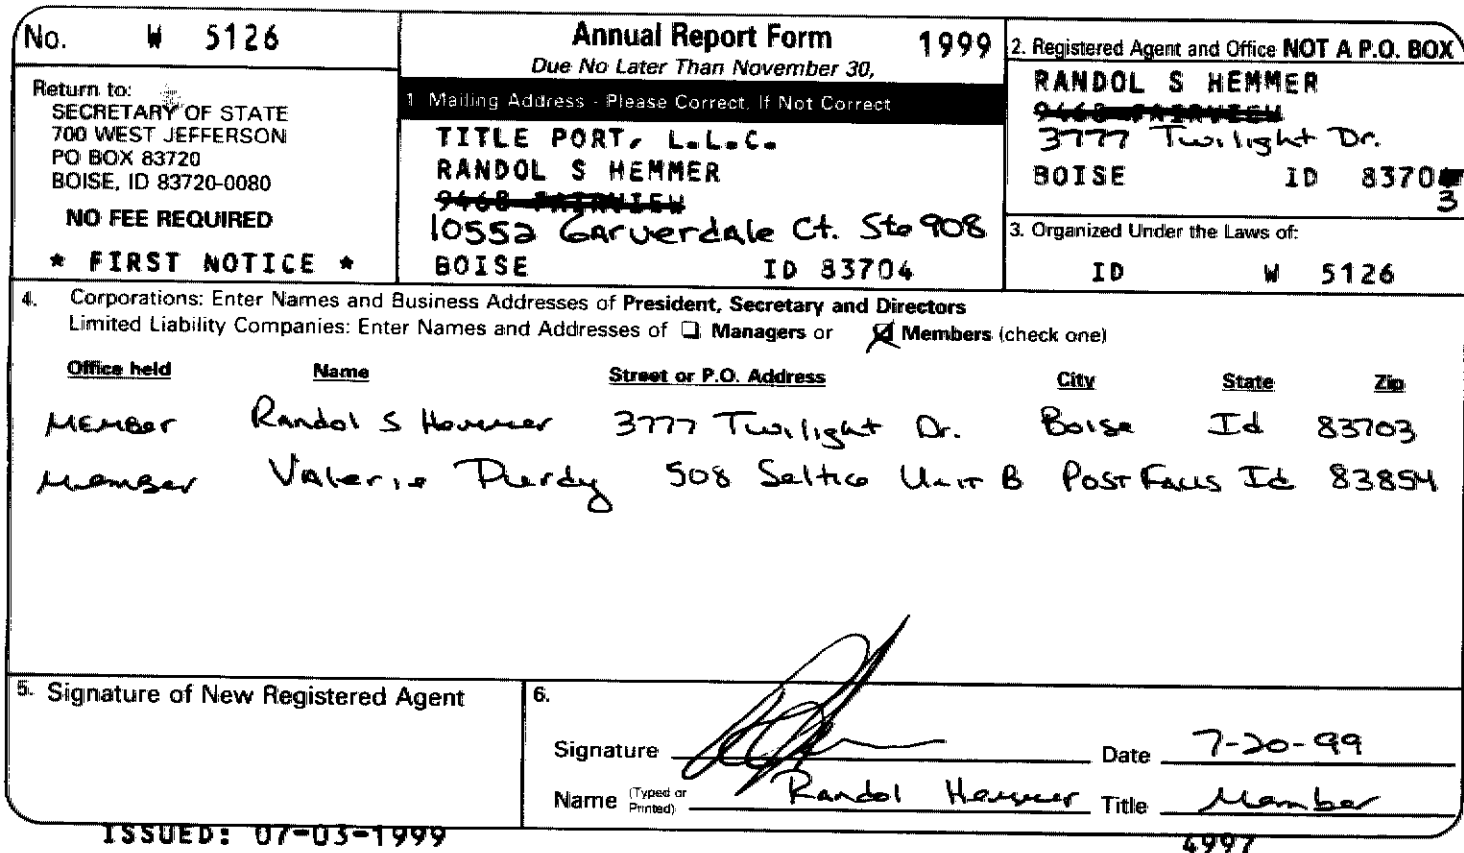 No. W 5126
Return to:
SECRETARY OF STATE
700 WEST JEFFERSON
PO BOX 83720
BOISE, ID 83720-0080
NO FEE REQUIRED
* FIRST NOTICE *
Annual Report Form 1999
Due No Later Than November 30,
1 Mailing Address - Please Correct, If Not Correct
TITLE PORT, L.L.C.
RANDOL S HEMMER
9468 FAIRVIEW
10552 Garverdale Ct. Ste 908
BOISE ID 83704
2. Registered Agent and Office NOT A P.O. BOX
RANDOL S HEMMER
9468 FAIRVIEW
3777 Twilight Dr.
BOISE ID 8370
3
3. Organized Under the Laws of:
ID W 5126
4. Corporations: Enter Names and Business Addresses of President, Secretary and Directors
Limited Liability Companies: Enter Names and Addresses of ☐ Managers or ☑ Members (check one)
Office held Name Street or P.O. Address City State Zip
Member Randol S Hemmer 3777 Twilight Dr. Boise Id 83703
Member Valerie Purdy 508 Seltice Unit B Post Falls Id 83854
5. Signature of New Registered Agent
6.
Signature Date 7-20-99
Name (Typed or Printed) Randol Hemmer Title Member
ISSUED: 07-03-1999
4997